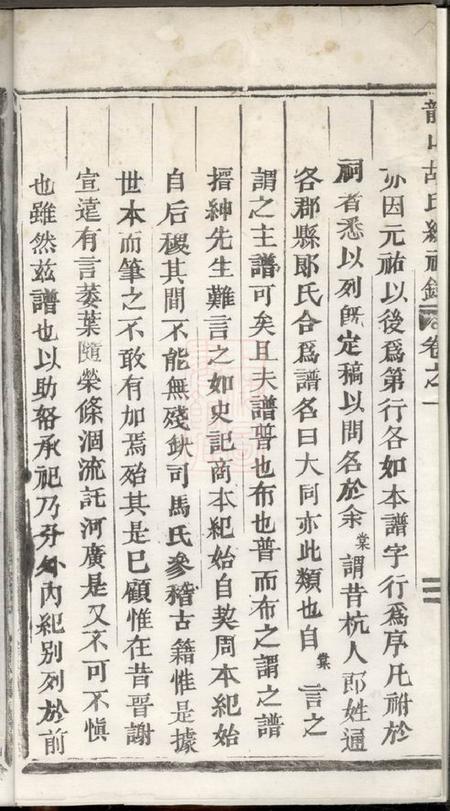 龍山胡氏統祠錄 卷之一
亦因元祐以後爲第行各如本譜字行爲序凡祔於
祠者悉以列旣定稿以問名於余棠謂昔杭人郎姓通
各郡縣郎氏合爲譜名曰大同亦此類也自棠言之
謂之主譜可矣且夫譜普也布也普而布之謂之譜
搢紳先生難言之如史記商本紀始自契周本紀始
自后稷其間不能無殘缺司馬氏參稽古籍惟是據
世本而筆之不敢有加焉殆其是已顧惟在昔晉謝
宣遠有言萎葉隨榮條涸流託河廣是又不可不愼
也雖然兹譜也以助祭承祀乃分外內紀别列於前